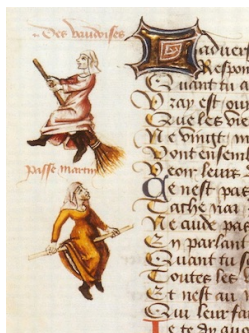 Des vaudoises
passe martin
Laduers
Respon
Quant tu a
Vray est ou
Que les vie
Ne vingt m
Vont ensem
Veoir leurs
Ce nest pas
Tache nar
Ne aude pas
En parlant
Quant tu s
Toutes les
Et nest au
Qui leur fa